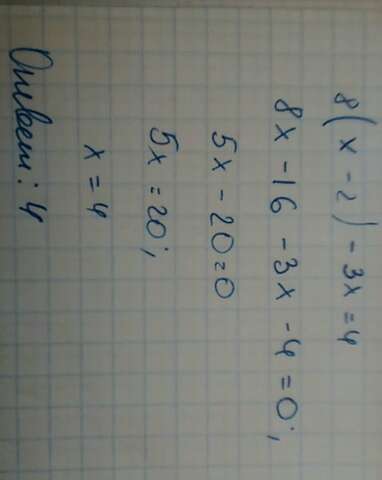 8(x - 2) - 3x = 4
8x - 16 - 3x - 4 = 0;
5x - 20 = 0
5x = 20;
x = 4
Ответ: 4